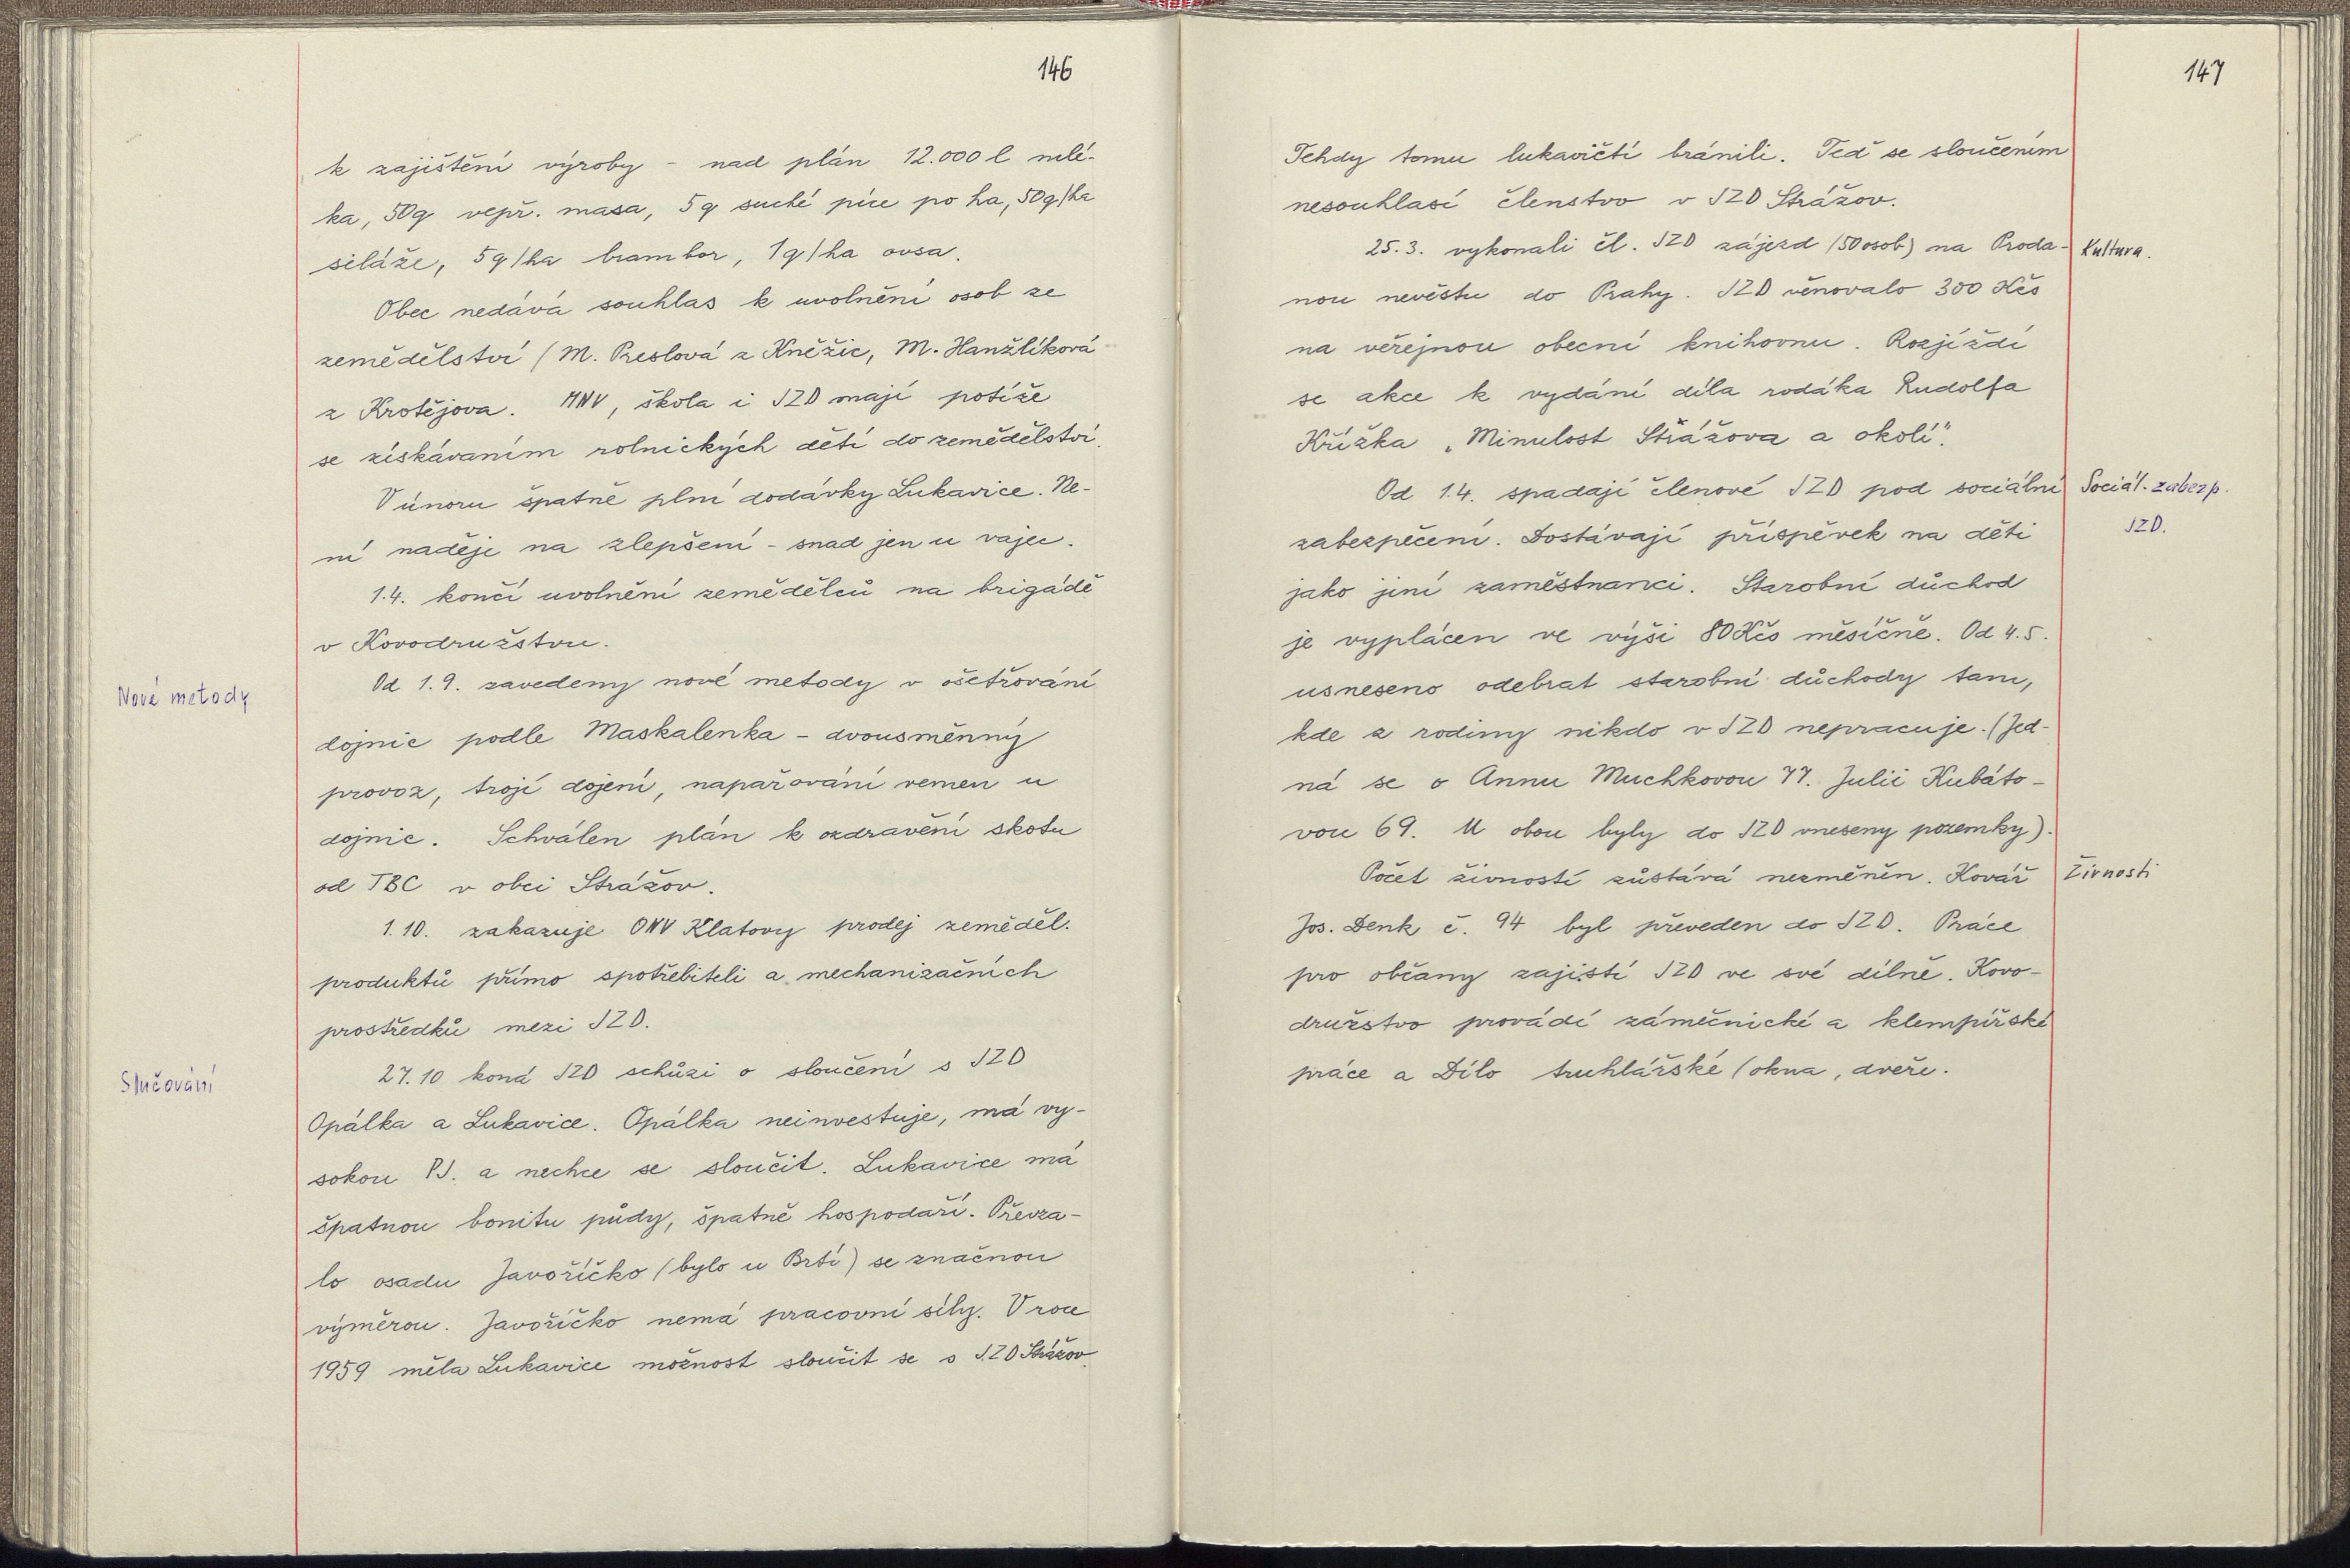 146
k zajištění výroby - nad plán 12.000 l mlé-
ka, 50q vepř. masa, 5q suché píce po ha, 50q/ha
siláže, 5q/ha brambor, 1q/ha ovsa.
Obec nedává souhlas k uvolnění osob ze
zemědělství (M. Preslová z Kněžic, M. Hanžlíková
z Krotějova. MNV, škola i JZD mají potíže
se získáváním rolnických dětí do zemědělství.
V únoru špatně plní dodávky Lukavice. Ne-
ní naděje na zlepšení - snad jen u vajec.
1.4. končí uvolnění zemědělců na brigádě
v Kovodružstvu.
Nové metody
Od 1.9. zavedeny nové metody v ošetřování
dojnic podle Maskalenka - dvousměnný
provoz, trojí dojení, napařování vemen u
dojnic. Schválen plán k ozdravění skotu
od TBC v obci Strážov.
1.10. zakazuje ONV Klatovy prodej zeměděl.
produktů přímo spotřebiteli a mechanizačních
prostředků mezi JZD.
Slučování
27.10 koná JZD schůzi o sloučení s JZD
Opálka a Lukavice. Opálka neinvestuje, má vy-
sokou PJ. a nechce se sloučit. Lukavice má
špatnou bonitu půdy, špatně hospodaří. Převza-
lo osadu Javoříčko (bylo u Brtí) se značnou
výměrou. Javoříčko nemá pracovní síly. V roce
1959 měla Lukavice možnost sloučit se s JZD Strážov.
147
Tehdy tomu lukavičtí bránili. Teď se sloučením
nesouhlasí členstvo v JZD Strážov.
25.3. vykonali čl. JZD zájezd (50 osob) na Proda-
Kultura.
nou nevěstu do Prahy. JZD věnovalo 300 Kčs
na veřejnou obecní knihovnu. Rozjíždí
se akce k vydání díla rodáka Rudolfa
Křížka „Minulost Strážova a okolí".
Od 1.4. spadají členové JZD pod sociální
Sociál. zabezp.
JZD.
zabezpečení. Dostávají příspěvek na děti
jako jiní zaměstnanci. Starobní důchod
je vyplácen ve výši 80 Kčs měsíčně. Od 4.5.
usneseno odebrat starobní důchody tam,
kde z rodiny nikdo v JZD nepracuje. (Jed-
ná se o Annu Muchkovou 77. Julii Kubáto-
vou 69. U obou byly do JZD vneseny pozemky).
Počet živností zůstává nezměněn. Kovář
Živnosti
Jos. Denk č. 94 byl převeden do JZD. Práce
pro občany zajistí JZD ve své dílně. Kovo-
družstvo provádí zámečnické a klempířské
práce a Dílo truhlářské (okna, dveře.